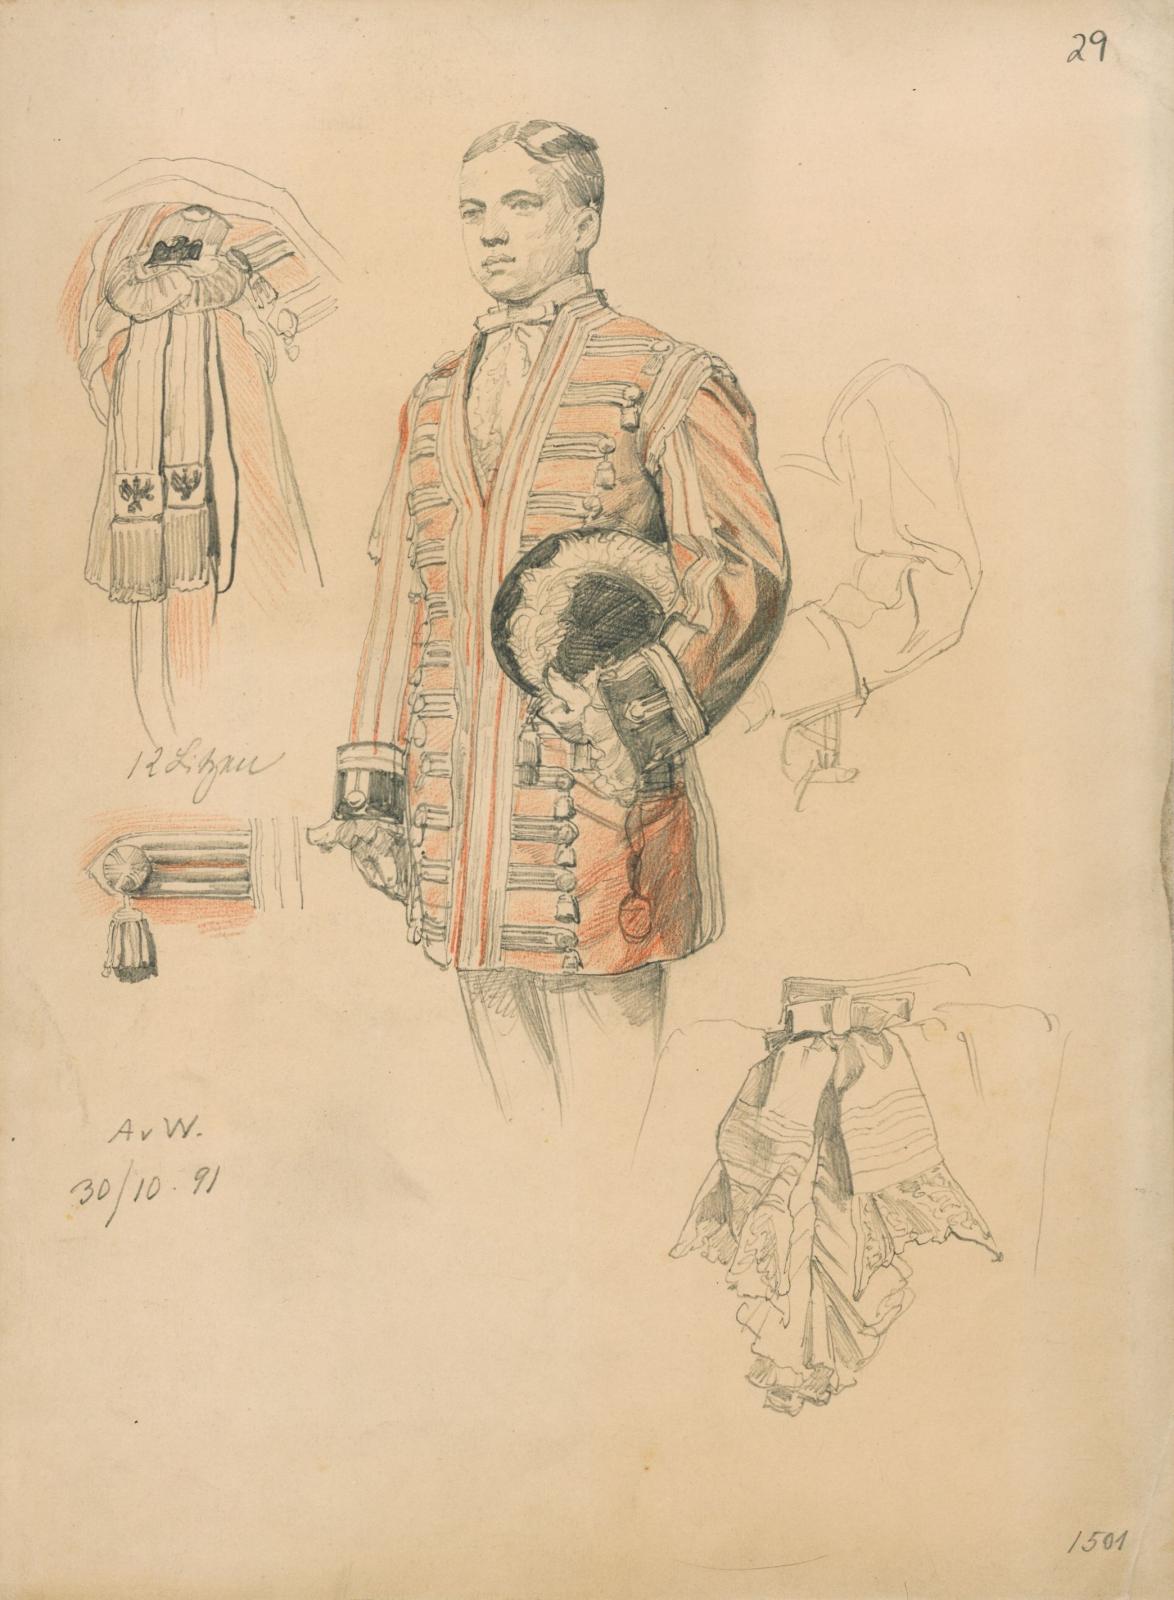 29
12 Litzen
A v W.
30/10. 91
1501